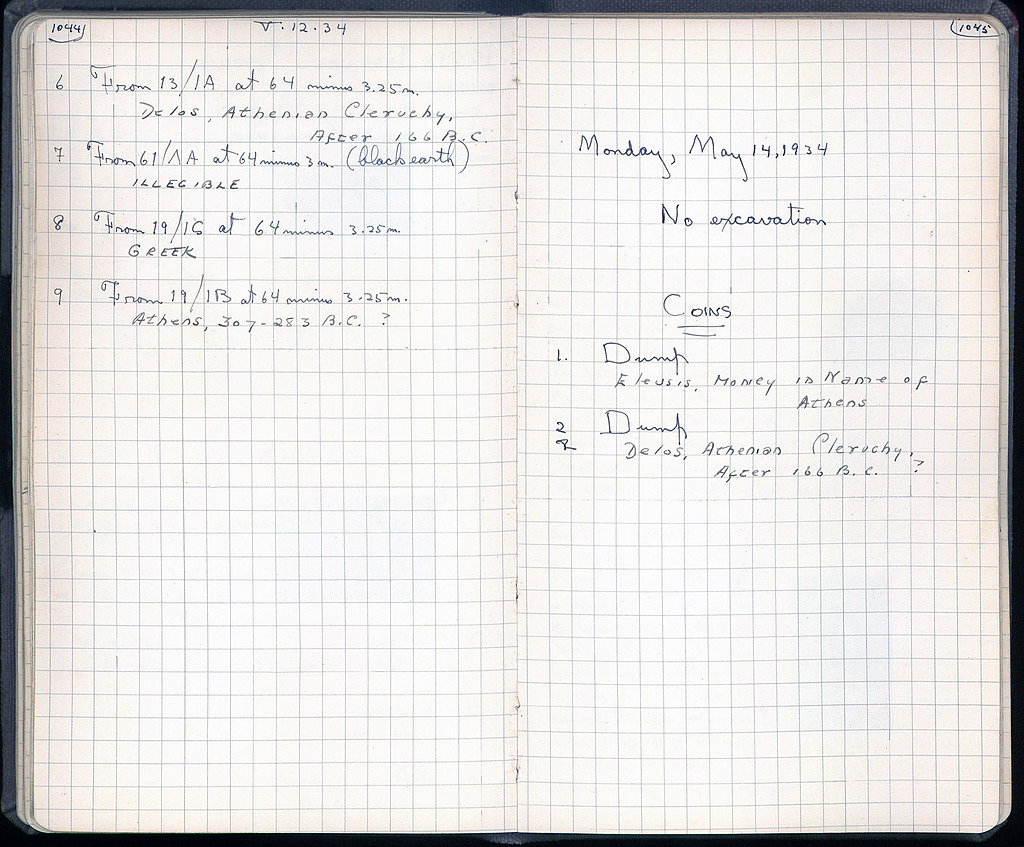 1044
V.12.34
6 From 13/1A at 64 minus 3.25m.
Delos, Athenian Cleruchy,
After 166 B.C.
7 From 61/ΛA at 64 minus 3m. (black earth)
ILLEGIBLE
8 From 19/1S at 64 minus 3.25m.
GREEK
9 From 19/1B at 64 minus 3.25m.
Athens, 307-283 B.C. ?
1045
Monday, May 14, 1934
No excavation
COINS
1. Dump
Eleusis, Money in Name of
Athens
2 Dump
Delos, Athenian Cleruchy,
After 166 B.C. ?